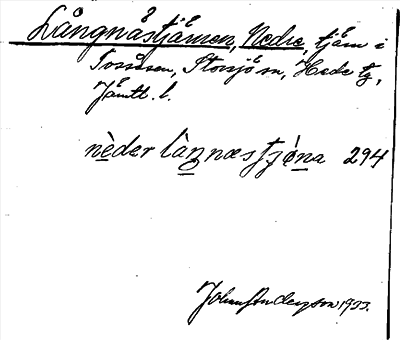 Långnästjärnen, Nedre, tjärn i
Tossåsen, Storsjö sn, Hede tg,
Jämtl. l.
nèder làŋnæstjø̀na 294
Johan Anderzon 1933.